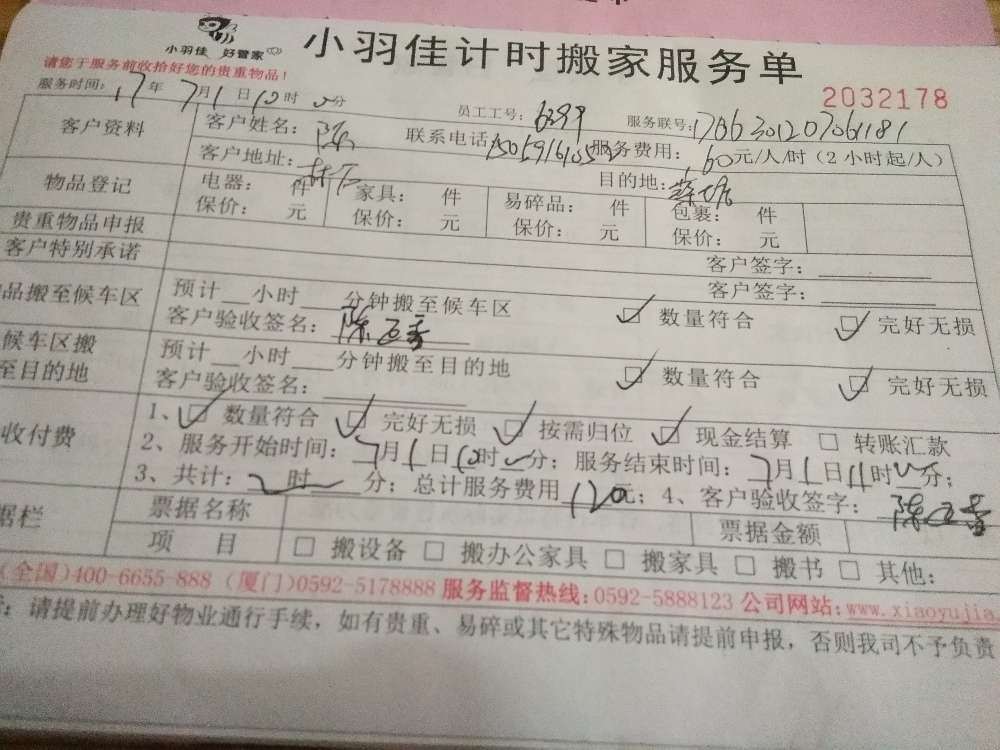 小羽佳 好管家
小羽佳计时搬家服务单
请您于服务前收拾好您的贵重物品!
2032178
服务时间: 17年 7月1日10时 分
员工工号: 6299
服务联号:
客户资料
客户姓名: 陈
联系电话
服务费用: 60元/人/时（2小时起/人）
客户地址:
目的地:
物品登记
电器: 件 家具: 件 易碎品: 件 包裹: 件
保价: 元 保价: 元 保价: 元 保价: 元
贵重物品申报
客户签字:
客户特别承诺
客户签字:
品搬至候车区
预计__小时___分钟搬至候车区
客户验收签名:
☑ 数量符合 ☑ 完好无损
候车区搬
至目的地
预计__小时___分钟搬至目的地
客户验收签名:
☑ 数量符合 ☑ 完好无损
收付费
1、☑ 数量符合 ☑ 完好无损 ☑ 按需归位 ☑ 现金结算 □ 转账汇款
2、服务开始时间: 7月1日10时 分; 服务结束时间: 7月1日11时 分;
3、共计: 2时 分; 总计服务费用120元; 4、客户验收签字:
据栏
票据名称
票据金额
项 目
□ 搬设备 □ 搬办公家具 □ 搬家具 □ 搬书 □ 其他:
(全国)400-6655-888 (厦门)0592-5178888 服务监督热线:0592-5888123 公司网站:www.xiaoyujia
: 请提前办理好物业通行手续，如有贵重、易碎或其它特殊物品请提前申报，否则我司不予负责